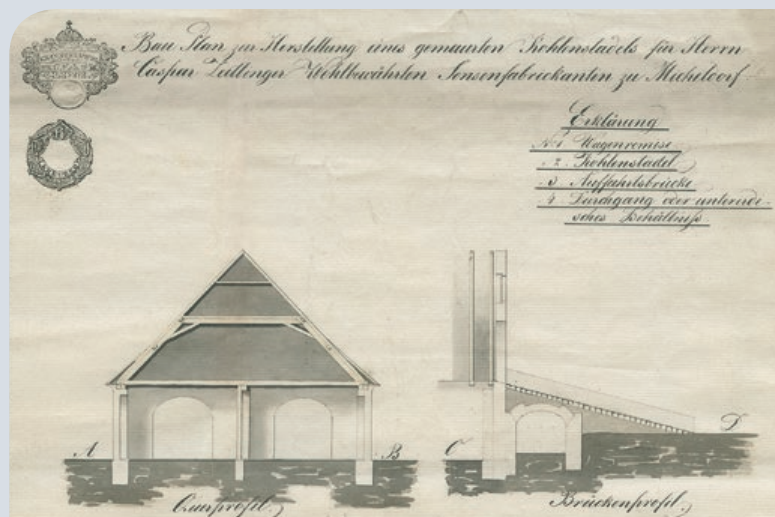 Bau Plan zur Herstellung eines gemauerten Kohlenstadels für Herrn
Caspar Zeitlinger Wohlbewährten Sensenfabrickanten zu Micheldorf
Erklärung
No 1 Wagenremise
2 Kohlenstadel
3 Auffahrtsbrücke
4 Durchgang oder unterirdi-
sches Behältniß
A
B
C
D
Querprofil.
Brückenprofil.